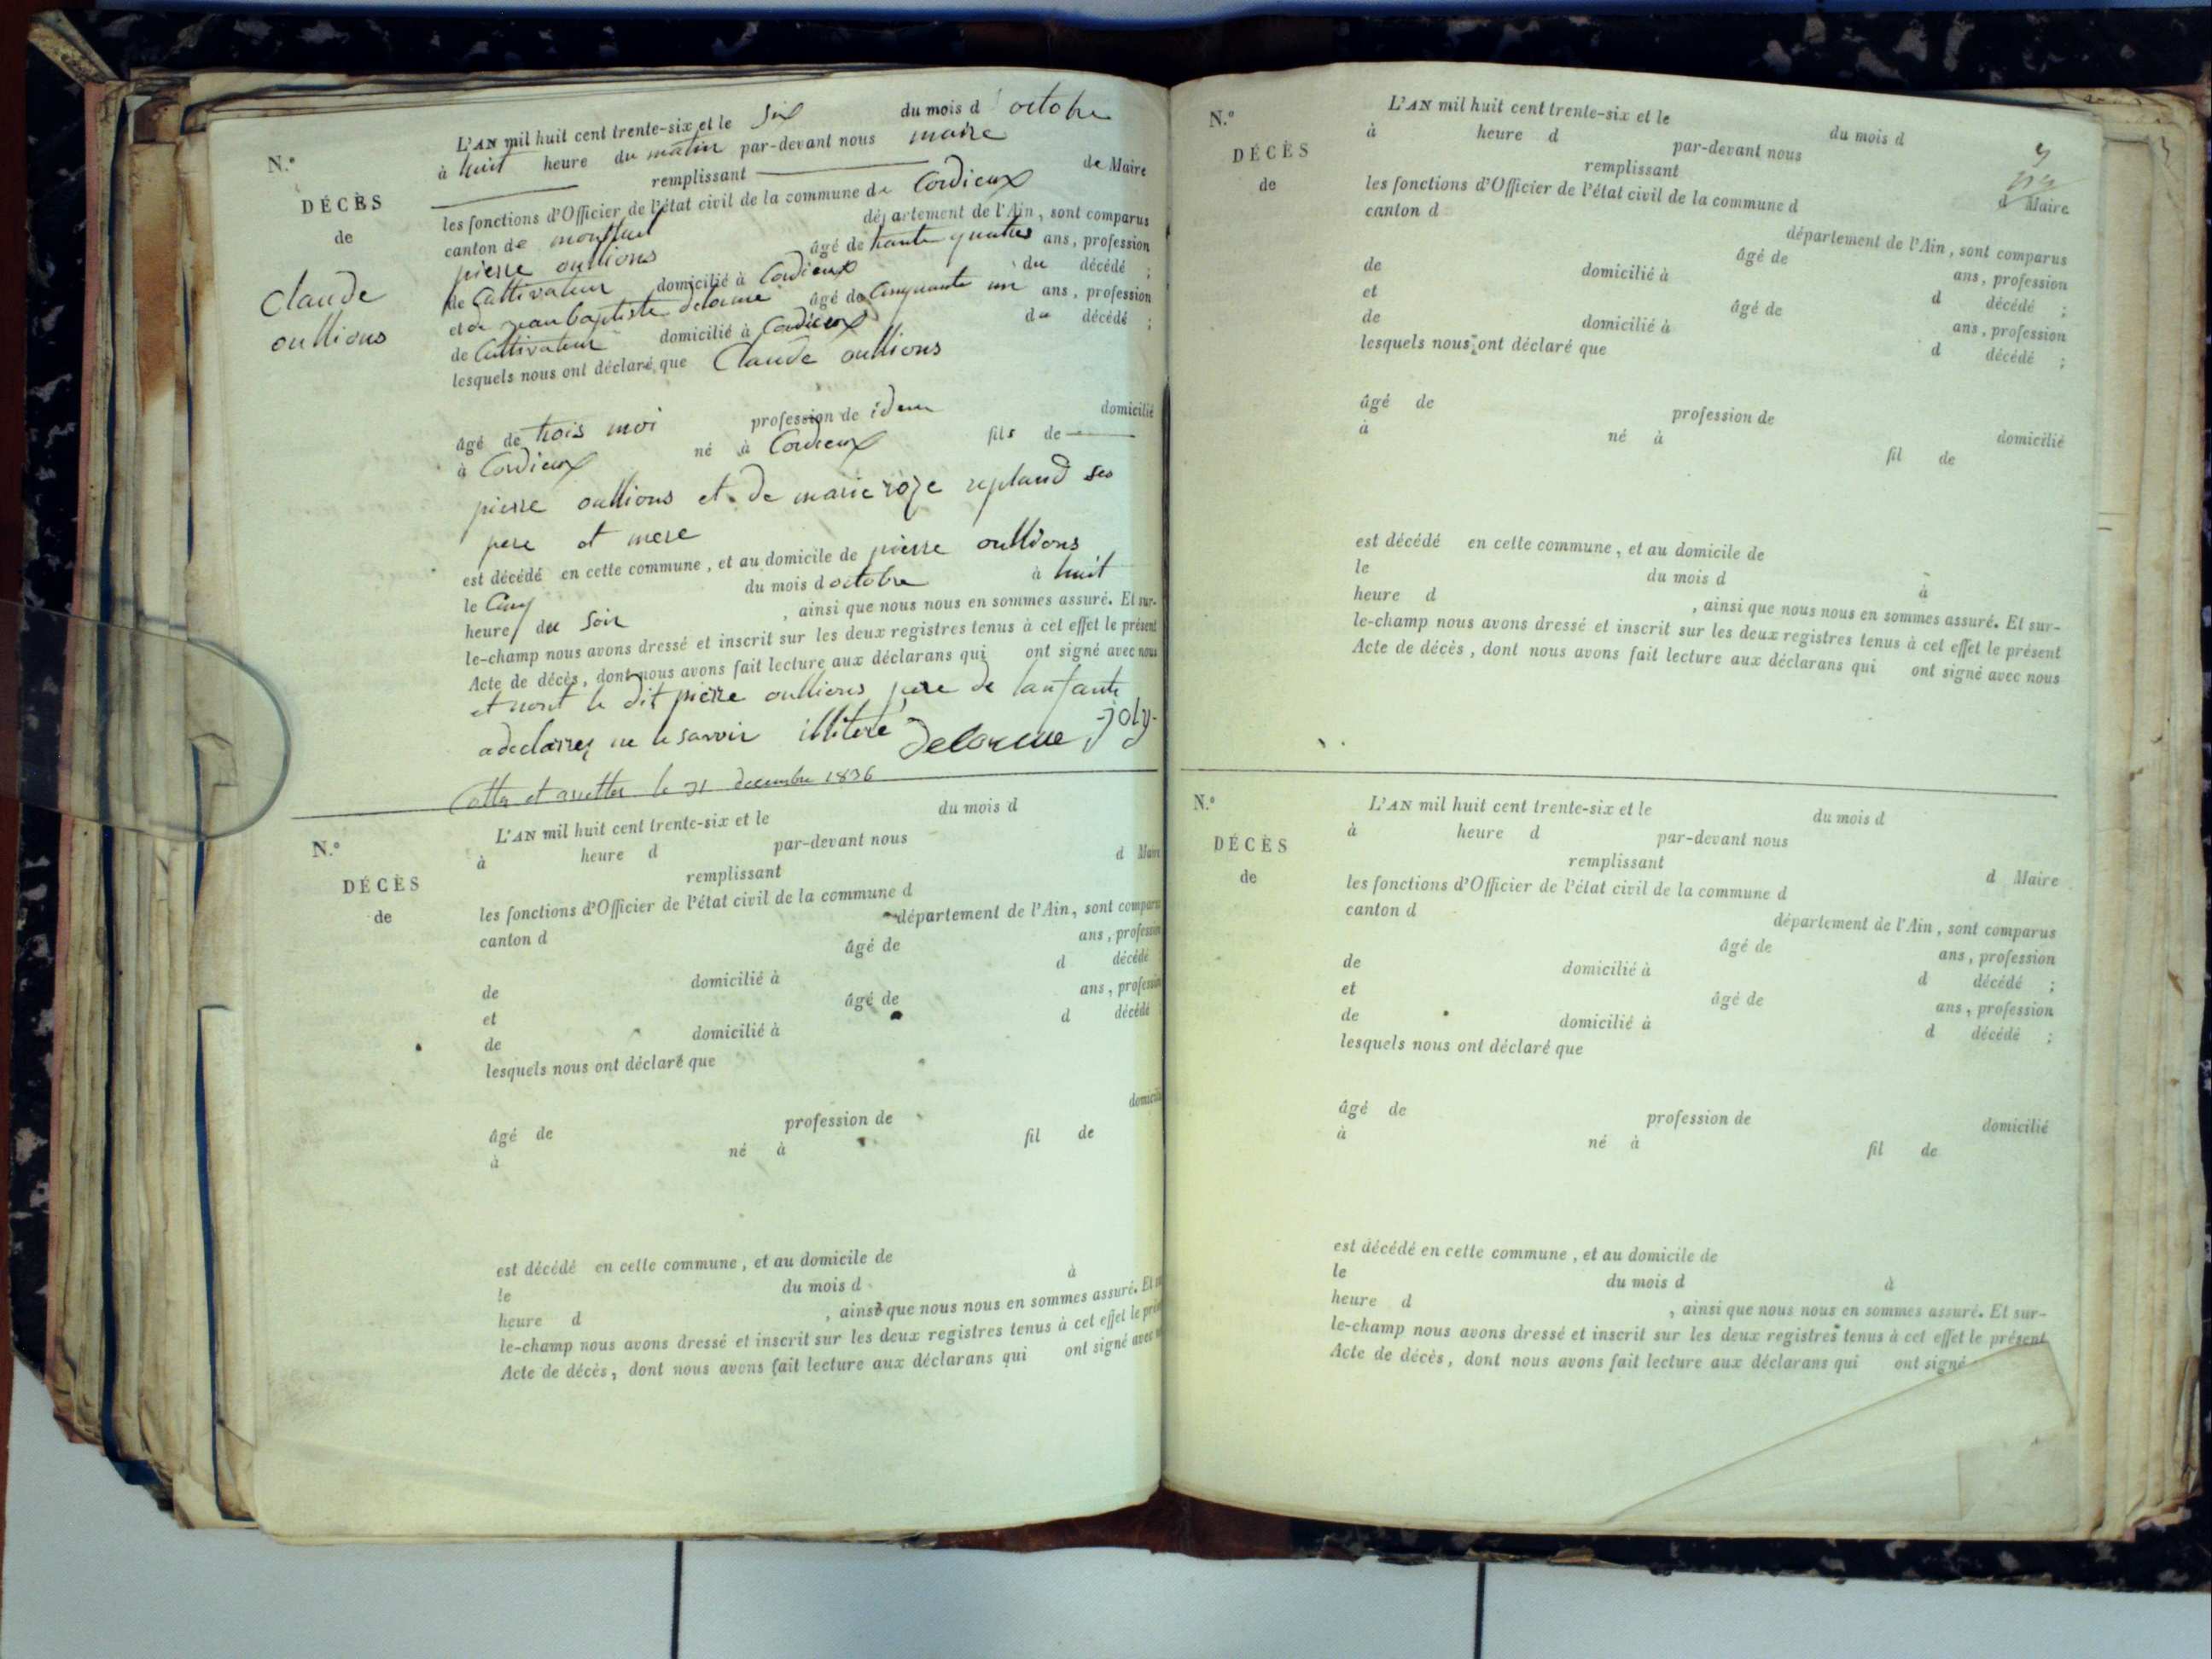 N.º
DÉCÈS
de
Claude
oullions
L'AN mil huit cent trente-six et le six du mois d octobre
à huit heure du matin par-devant nous maire
remplissant de Maire
les fonctions d'Officier de l'état civil de la commune de Cordieux
canton de montluel département de l'Ain, sont comparus
pierre oullions âgé de trante quatre ans, profession
de Cultivateur domicilié à Cordieux du décédé ;
et de jean baptiste delorme âgé de Cinquante un ans, profession
de Cultivateur domicilié à Cordieux du décédé ;
lesquels nous ont déclaré que Claude oullions
âgé de trois moi profession de idem domicilié
à Cordieux né à Cordieux fils de
pierre oullions et de marie roze repland ses
pere et mere
est décédé en cette commune, et au domicile de pierre oullions
le Cinq du mois d octobre à huit
heure du soir , ainsi que nous nous en sommes assuré. Et sur-
le-champ nous avons dressé et inscrit sur les deux registres tenus à cet effet le présent
Acte de décès, dont nous avons fait lecture aux déclarans qui ont signé avec nous
et nont le dit pierre oullions pere de lanfante
a declarrez ne le savoir illiteré Delorme joly
le 31 decembre 1836
N.º
DÉCÈS
de
L'AN mil huit cent trente-six et le du mois d
à heure d par-devant nous
remplissant d Maire
les fonctions d'Officier de l'état civil de la commune d
canton d département de l'Ain, sont comparus
âgé de ans, profession
de domicilié à d décédé
et âgé de ans, profession
de domicilié à d décédé
lesquels nous ont déclaré que
âgé de profession de domicilié
à né à fil de
est décédé en cette commune, et au domicile de
le du mois d à
heure d , ainsi que nous nous en sommes assuré. Et
le-champ nous avons dressé et inscrit sur les deux registres tenus à cet effet le
Acte de décès, dont nous avons fait lecture aux déclarans qui ont signé avec
N.º
DÉCÈS
de
L'AN mil huit cent trente-six et le du mois d
à heure d par-devant nous
remplissant d Maire
les fonctions d'Officier de l'état civil de la commune d
canton d département de l'Ain, sont comparus
âgé de ans, profession
de domicilié à d décédé ;
et âgé de ans, profession
de domicilié à d décédé ;
lesquels nous ont déclaré que
âgé de profession de domicilié
à né à fil de
est décédé en cette commune, et au domicile de
le du mois d à
heure d , ainsi que nous nous en sommes assuré. Et sur-
le-champ nous avons dressé et inscrit sur les deux registres tenus à cet effet le présent
Acte de décès, dont nous avons fait lecture aux déclarans qui ont signé avec nous
N.º
DÉCÈS
de
L'AN mil huit cent trente-six et le du mois d
à heure d par-devant nous
remplissant d Maire
les fonctions d'Officier de l'état civil de la commune d
canton d département de l'Ain, sont comparus
âgé de ans, profession
de domicilié à d décédé ;
et âgé de ans, profession
de domicilié à d décédé ;
lesquels nous ont déclaré que
âgé de profession de domicilié
à né à fil de
est décédé en cette commune, et au domicile de
le du mois d à
heure d , ainsi que nous nous en sommes assuré. Et sur-
le-champ nous avons dressé et inscrit sur les deux registres tenus à cet effet le présent
Acte de décès, dont nous avons fait lecture aux déclarans qui ont signé